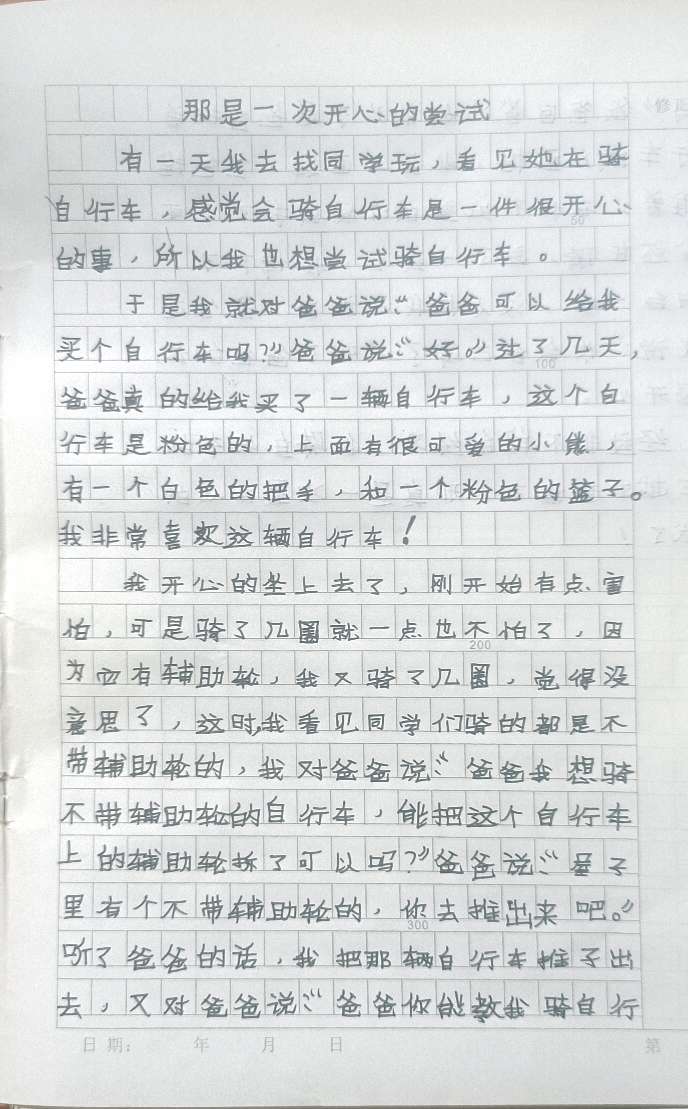 那是一次开心的尝试
有一天我去找同学玩，看见她在骑
自行车，感觉会骑自行车是一件很开心
的事，所以我也想尝试骑自行车。
于是我就对爸爸说：“爸爸可以给我
买个自行车吗？”爸爸说：“好。”过了几天，
爸爸真的给我买了一辆自行车，这个自
行车是粉色的，上面有很可爱的小熊，
有一个白色的把手，和一个粉色的篮子。
我非常喜欢这辆自行车！
我开心的坐上去了，刚开始有点害
怕，可是骑了几圈就一点也不怕了，因
为它有辅助轮，我又骑了几圈，觉得没
意思了，这时，我看见同学们骑的都是不
带辅助轮的，我对爸爸说：“爸爸我想骑
不带辅助轮的自行车，能把这个自行车
上的辅助轮拆了可以吗？”爸爸说：“
里有个不带辅助轮的，你去推出来吧。”
听了爸爸的话，我把那辆自行车推了出
去，又对爸爸说：“爸爸你能教我骑自行
50
100
200
300
日期： 年 月 日
第